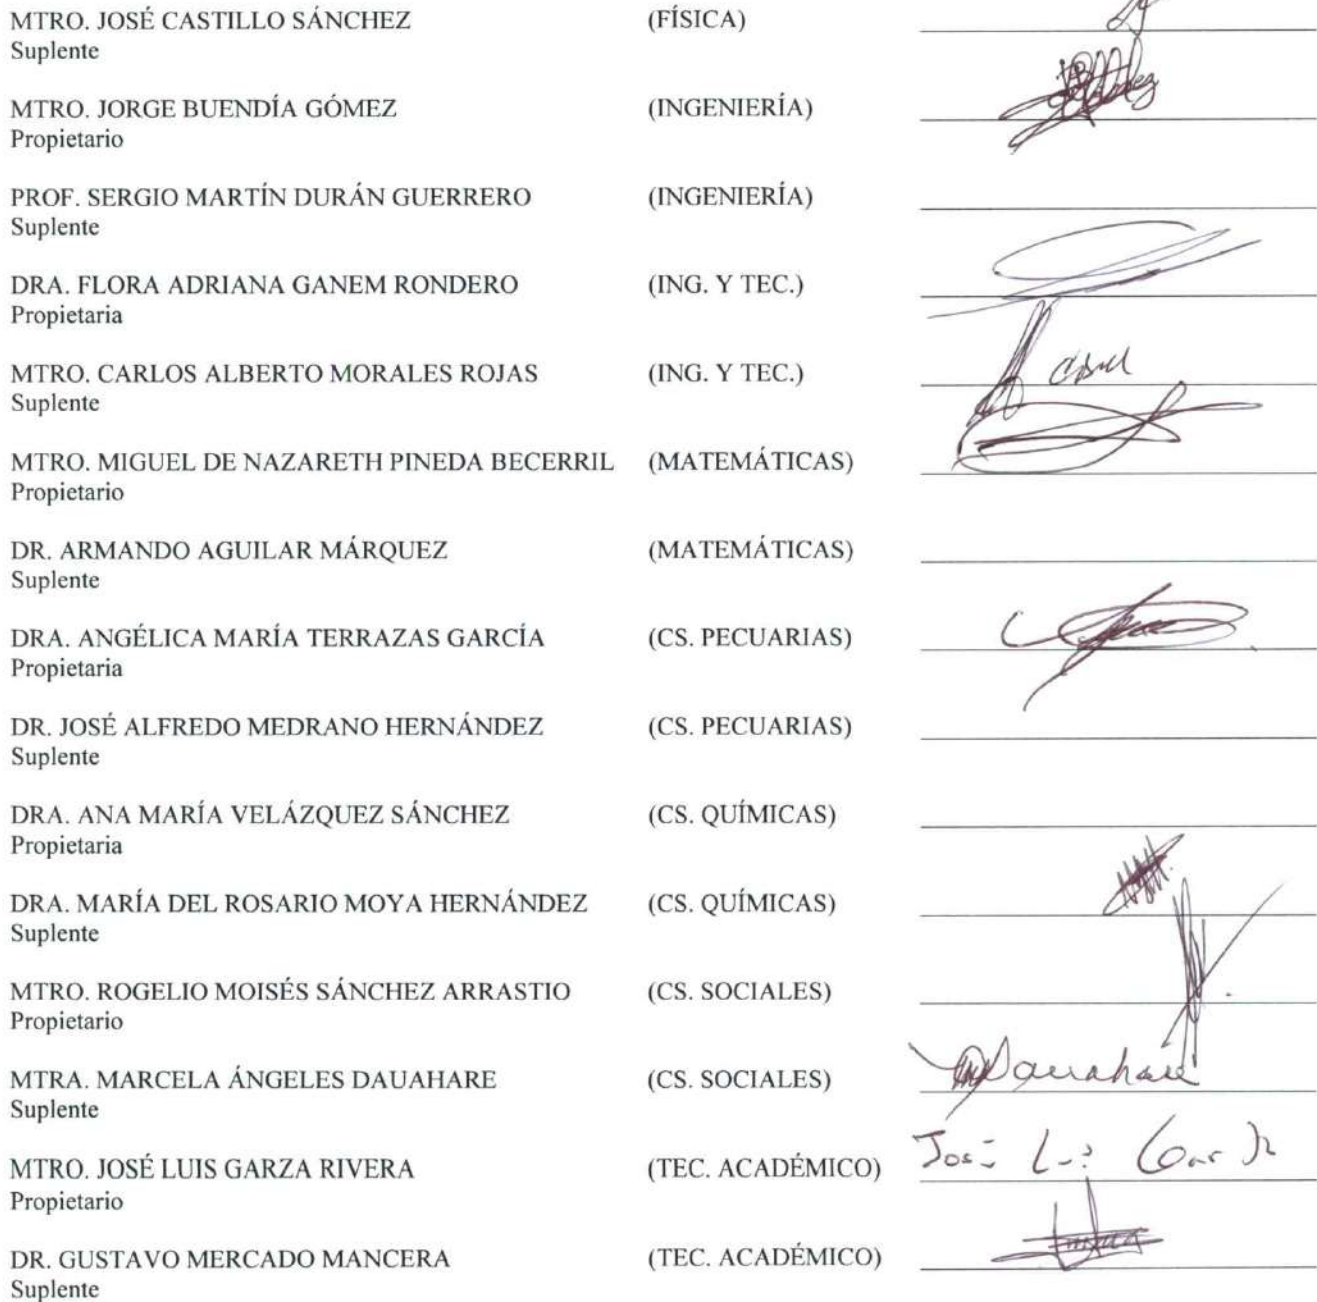 MTRO. JOSÉ CASTILLO SÁNCHEZ (FÍSICA)
Suplente
MTRO. JORGE BUENDÍA GÓMEZ (INGENIERÍA)
Propietario
PROF. SERGIO MARTÍN DURÁN GUERRERO (INGENIERÍA)
Suplente
DRA. FLORA ADRIANA GANEM RONDERO (ING. Y TEC.)
Propietaria
MTRO. CARLOS ALBERTO MORALES ROJAS (ING. Y TEC.)
Suplente
MTRO. MIGUEL DE NAZARETH PINEDA BECERRIL (MATEMÁTICAS)
Propietario
DR. ARMANDO AGUILAR MÁRQUEZ (MATEMÁTICAS)
Suplente
DRA. ANGÉLICA MARÍA TERRAZAS GARCÍA (CS. PECUARIAS)
Propietaria
DR. JOSÉ ALFREDO MEDRANO HERNÁNDEZ (CS. PECUARIAS)
Suplente
DRA. ANA MARÍA VELÁZQUEZ SÁNCHEZ (CS. QUÍMICAS)
Propietaria
DRA. MARÍA DEL ROSARIO MOYA HERNÁNDEZ (CS. QUÍMICAS)
Suplente
MTRO. ROGELIO MOISÉS SÁNCHEZ ARRASTIO (CS. SOCIALES)
Propietario
MTRA. MARCELA ÁNGELES DAUAHARE (CS. SOCIALES) Dauahare
Suplente
MTRO. JOSÉ LUIS GARZA RIVERA (TEC. ACADÉMICO) José
Propietario
DR. GUSTAVO MERCADO MANCERA (TEC. ACADÉMICO)
Suplente